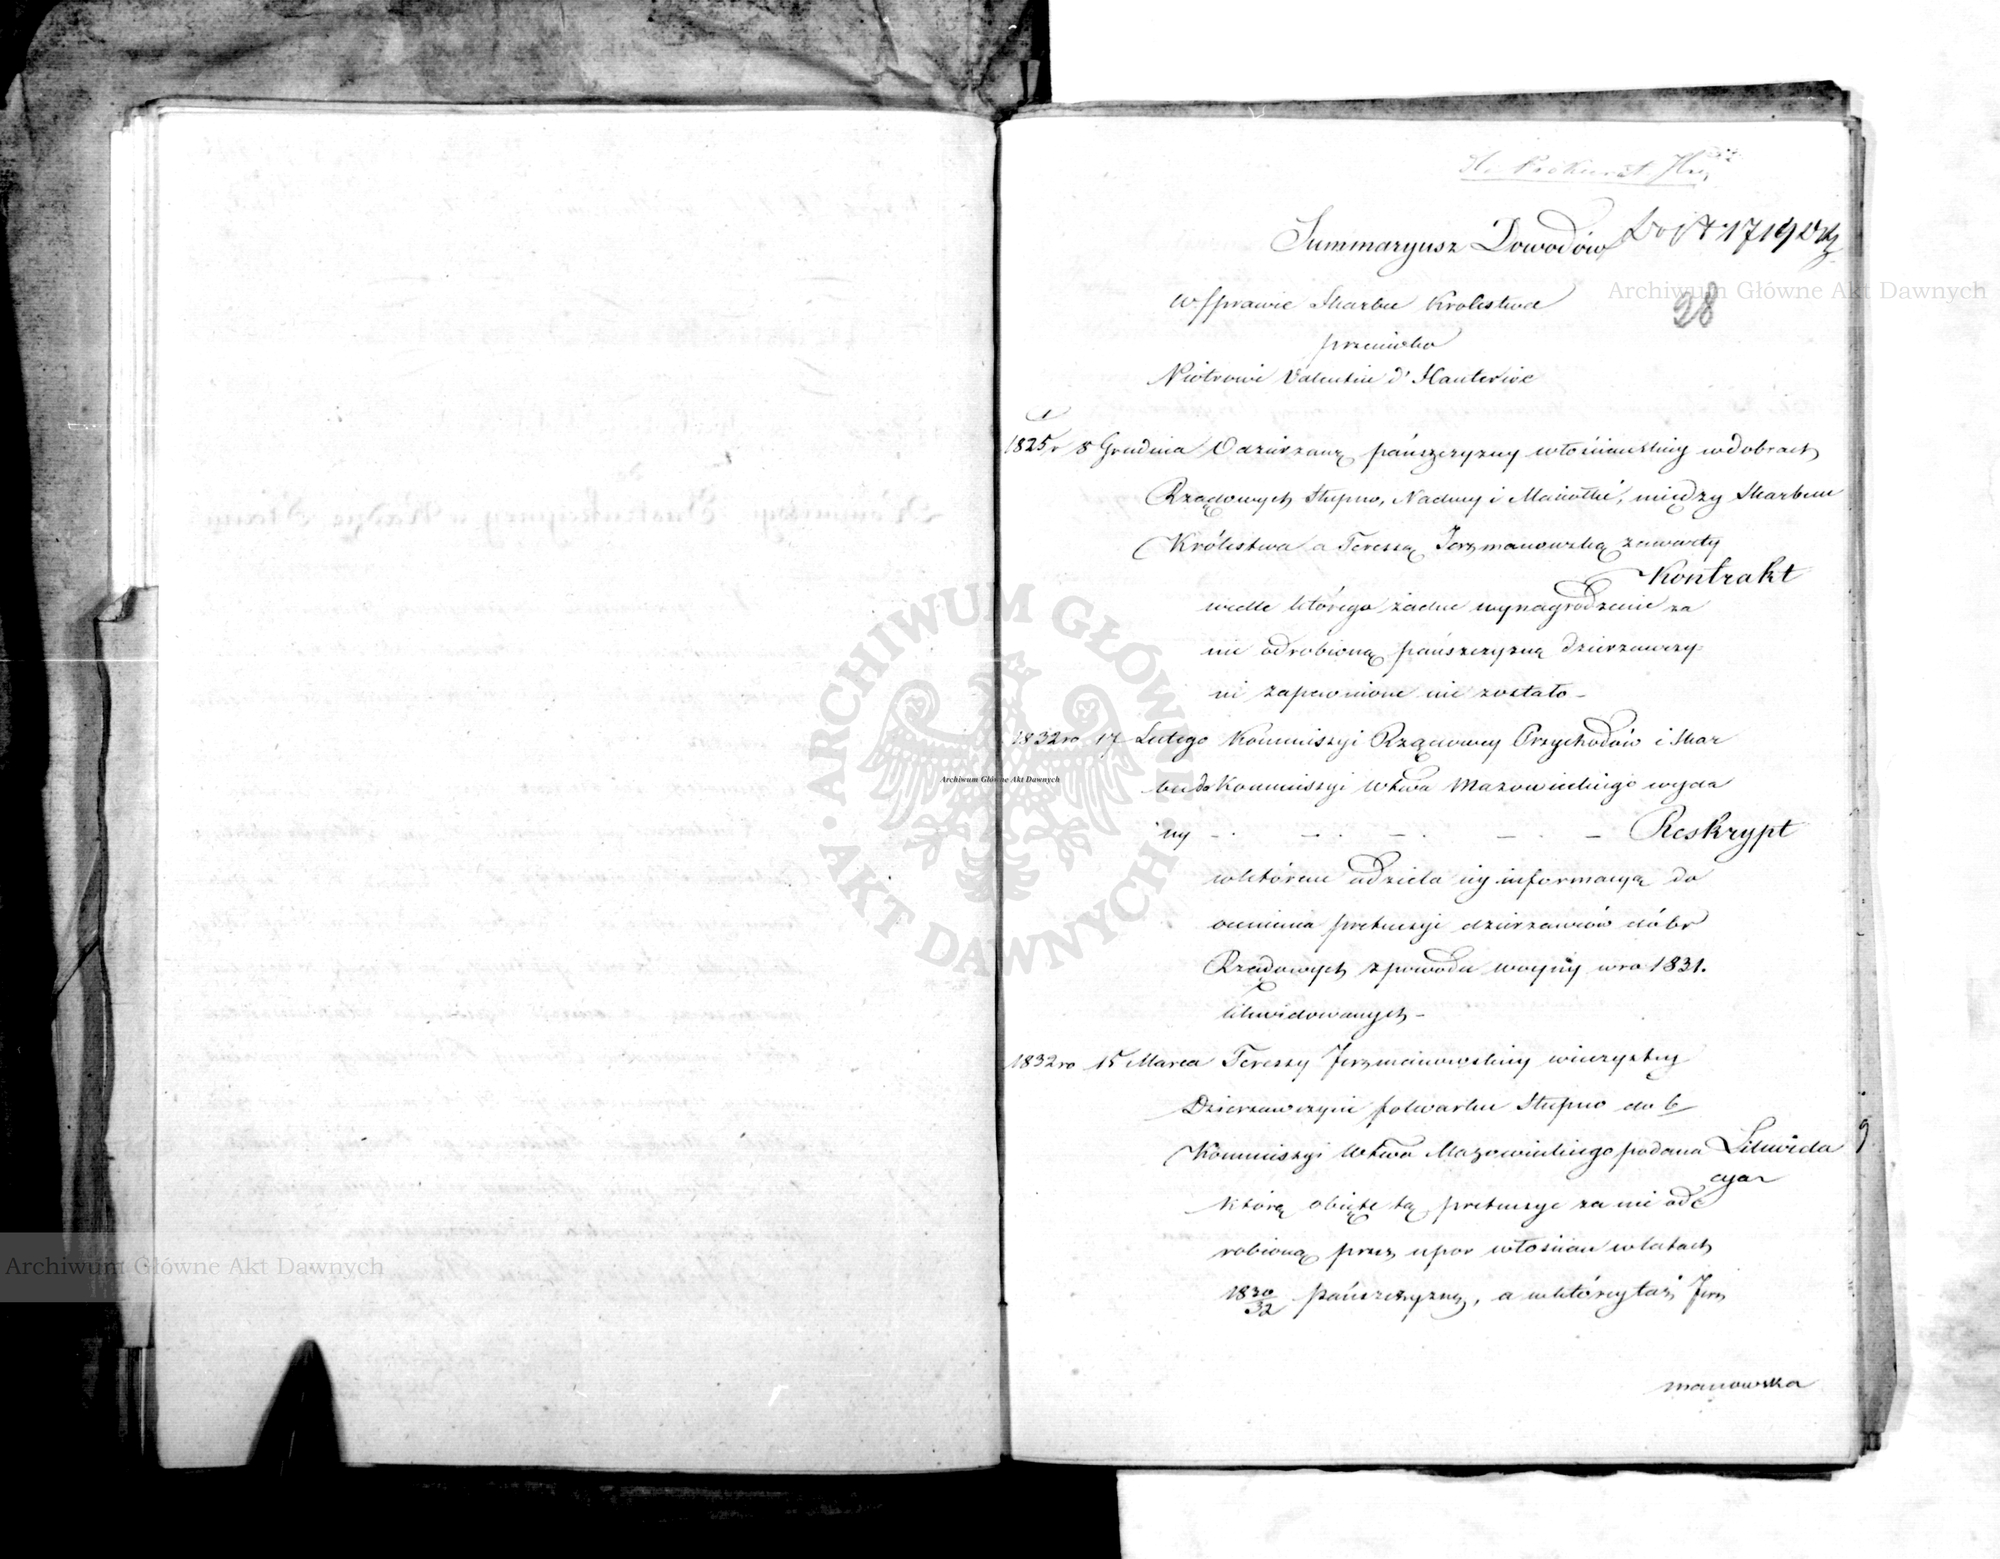 Summaryusz Dowodów
28
w sprawie Skarbu Królestwa
przeciwko
Piotrowi Valentin d'Hauterive
1825 r 8 Grudnia O dzierżawę pańszczyzny włościańskiey w dobrach
Rządowych Słupno, Nadwey i Maiołki, między Skarbem
Królestwa a Teressą Jerzmanowską zawarty
Kontrakt
wedle którego żadne wynagrodzenie za
nie odrobioną pańszczyznę dzierzawczy-
ni zapewnione nie zostało –
1832 ro 17 Lutego Kommissyi Rządowey Przychodów i Skar
bu do Kommissyi Wtwa Mazowieckiego wyda
ny – . – . – . – . – Reskrypt
w którem udziela iey informacyą do
ocenienia pretensyi dzierzawców dóbr
Rządowych z powodu woyny w ro 1831.
likwidowanych –
1832 ro 15 Marca Teressy Jerzmanowskiey wieczystey
Dzierzawczyni folwarku Słupno do b
Kommissyi Wtwa Mazowieckiego podana Likwida
cya
którą obięte są pretensye za nie od
robioną przez upor włościan w latach
1830/32 pańszczyznę, a w którey taż Jerz
manowska
Archiwum Główne Akt Dawnych
Archiwum Główne Akt Dawnych
Archiwum Główne Akt Dawnych
ARCHIWUM GŁÓWNE AKT DAWNYCH